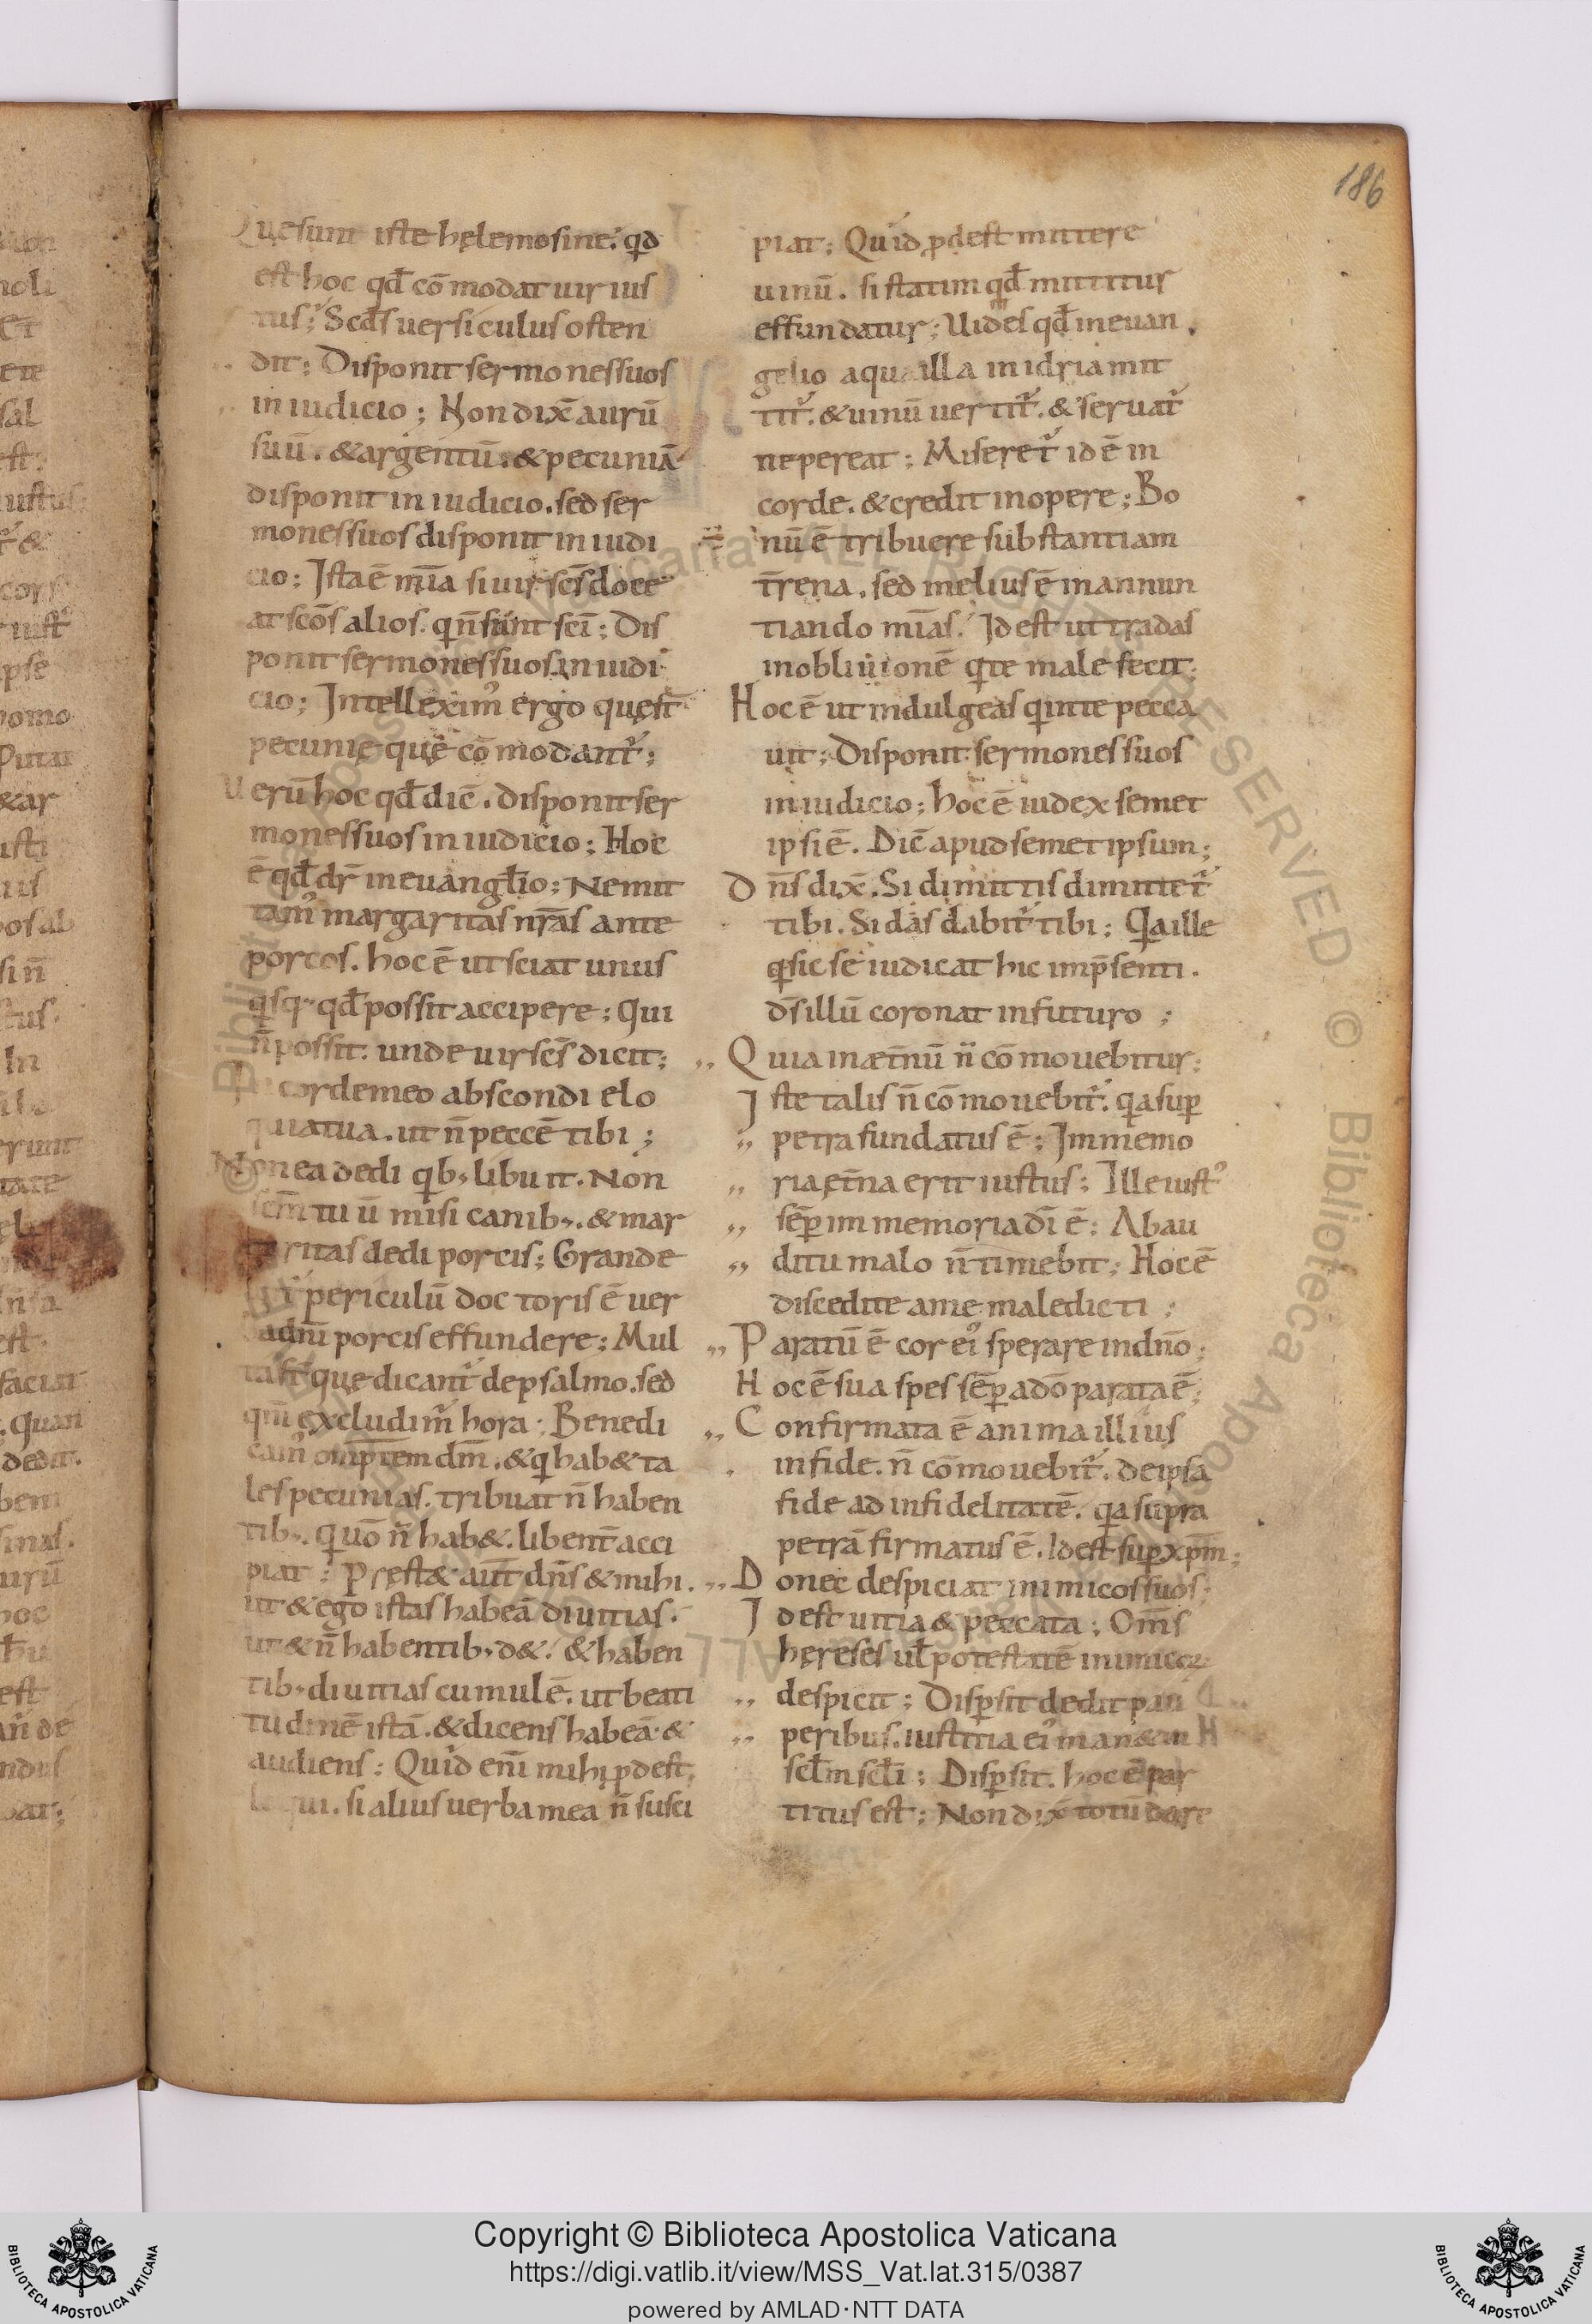 186
Quę sunt iste hęlemosine. qd
est hoc qđ cōmodat uir ius
tus; Scđs uersiculus osten
dit; Disponit sermones suos
in iudicio; Non dix̄ aurū
suū. & argentū. & pecuniā
disponit in iudicio. sed ser
mones suos disponit in iudi
cio; Ista ē mīa si uir scs̄ doce
at scōs alios. q n̄ sunt scī; Dis
ponit sermones suos in iudi
cio; Intelleximꝰ ergo quę st̄
pecunię quę cōmodant᷒;
Uerū hoc qđ dic̄. disponit ser
mones suos in iudicio; Hoc
ē qđ dr̄ in euangłio; Ne mit
tamꝰ margaritas nr̄as ante
porcos. hoc ē ut sciat unus
qsq; qđ possit accipere; Qui
n̄ possit. unde uir scs̄ dicit;
In corde meo abscondi elo
quia tua. ut n̄ peccē tibi;
Non ea dedi qb; libuit. Non
scm̄ tuū misi canib;. & mar
ritas dedi porcis; Grande
periculū doctoris ē uer
ba dnī porcis effundere; Mul
ta st̄ quę dicant᷒ de psalmo. sed
qm̄ excludim᷒ hora; Benedi
camꝰ omp̄tem dm̄. & q hab& ta
les pecunias. tribuat n̄ haben
tib;. quō n̄ hab&. libent̄ acci
piat; Pręst& aut̄ dn̄s & mihi.
ut & ego istas habeā diuitias.
ut & n̄ habentib; d&. & haben
tib; diuitias cumulē. ut beati
tudinē istā. & dicens habeā. &
audiens; Quid enī mihi ꝓdest
loqui. si alius uerba mea n̄ susci
piat; Quid ꝓdest mittere
uinū. si statim qđ mittitur
effundatur; Uides qđ in euan
gelio aqua illa in idria mit
tit᷒. & uinū uertit᷒. & seruat᷒
ne pereat; Miseret᷒ id ē in
corde. & credit in opere; Bo
nū ē tribuere substantiam
t̄rena. sed melius ē in annun
tiando mīas. Id est ut tradas
in obliuionē q te male fecit;
Hoc ē ut indulgeas q in te pecca
uit; Disponit sermones suos
in iudicio; hoc ē iudex semet
ipsi ē. Dic̄ apud semetipsum;
Dn̄s dix̄. Si dimittis dimittet᷒
tibi. Si das dabit᷒ tibi; Qa ille
q sic se iudicat hic in p̄senti.
ds̄ illū coronat in futuro;
Quia in æt̄nū n̄ cōmouebitur;
Iste talis n̄ cōmouebit᷒. qa suꝑ
petra fundatus ē; In memo
ria ęt̄na erit iustus; Ille iustꝰ
sēꝑ in memoria dī ē; Ab au
ditu malo n̄ timebit; Hoc ē
discedite a me maledicti;
Paratū ē cor eiꝰ sperare in dn̄o;
Hoc ē sua spes sēꝑ ad dō parata ē;
Confirmata ē anima illius
in fide. n̄ cōmouebit᷒. de ipsa
fide ad infidelitatē. qa supra
petrā firmatus ē. Id est suꝑ xpm̄;
Donec despiciat inimicos suos;
Id est uitia & peccata; Om̄s
hęreses ul̄ potestatē inimicoꝝ
despicit; Disꝑsit dedit pau
peribus. iustitia eiꝰ man& in
scl̄m scl̄i; Disꝑsit. hoc ē par
titus est; Non dix̄ totū dare
Copyright © Biblioteca Apostolica Vaticana
https://digi.vatlib.it/view/MSS_Vat.lat.315/0387
powered by AMLAD·NTT DATA
BIBLIOTECA APOSTOLICA VATICANA
BIBLIOTECA APOSTOLICA VATICANA